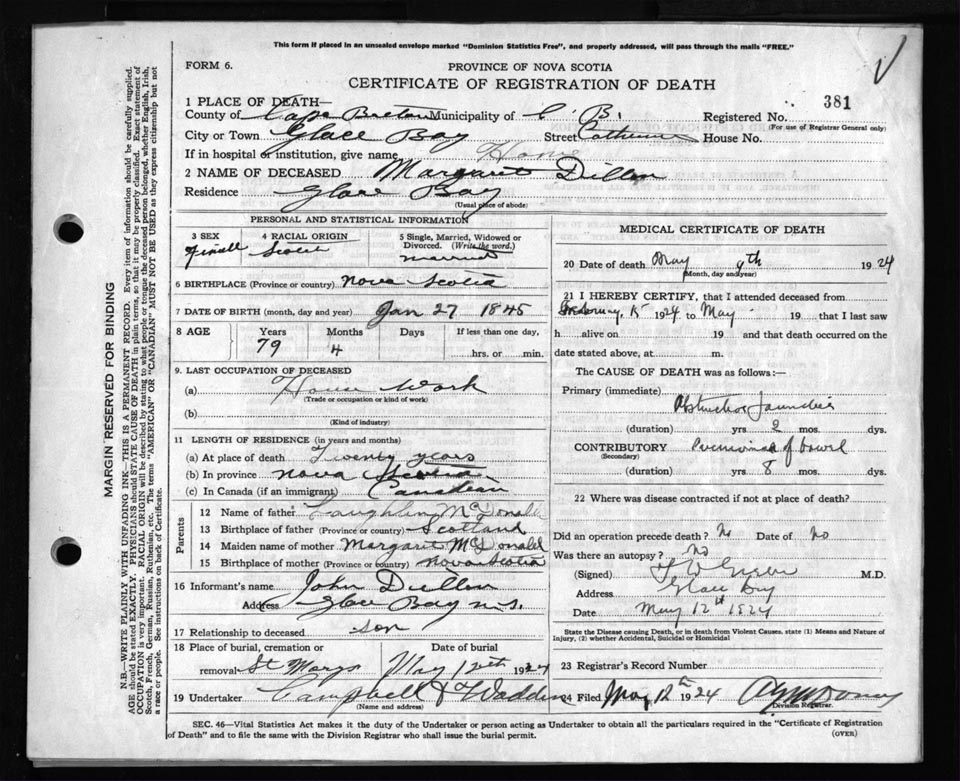 This form if placed in an unsealed envelope marked "Dominion Statistics Free", and properly addressed, will pass through the mails "FREE."
FORM 6.
PROVINCE OF NOVA SCOTIA
CERTIFICATE OF REGISTRATION OF DEATH
381
1 PLACE OF DEATH—
County of Cape Breton Municipality of C. B. Registered No.
(For use of Registrar General only)
City or Town Glace Bay Street House No.
If in hospital or institution, give name Home
2 NAME OF DECEASED Margaret Dillon
Residence Glace Bay
(Usual place of abode)
PERSONAL AND STATISTICAL INFORMATION
3 SEX 4 RACIAL ORIGIN 5 Single, Married, Widowed or Divorced. (Write the word.)
Female Scotch married
6 BIRTHPLACE (Province or country) Nova Scotia
7 DATE OF BIRTH (month, day and year) Jan 27 1845
8 AGE Years Months Days If less than one day,
79 4 hrs. or min.
9. LAST OCCUPATION OF DECEASED
(a) House Work
(Trade or occupation or kind of work)
(b)
(Kind of industry)
11 LENGTH OF RESIDENCE (in years and months)
(a) At place of death Twenty years
(b) In province Nova Scotia
(c) In Canada (if an immigrant) Canadian
Parents
12 Name of father Laughlin McDonald
13 Birthplace of father (Province or country) Scotland
14 Maiden name of mother Margaret McDonald
15 Birthplace of mother (Province or country) Nova Scotia
16 Informant's name John Dillon
Address Glace Bay N.S.
17 Relationship to deceased son
18 Place of burial, cremation or removal St Marys Date of burial May 12th 1924
19 Undertaker Campbell & Wadden
(Name and address)
MEDICAL CERTIFICATE OF DEATH
20 Date of death May 9th 1924
(Month, day and year)
21 I HEREBY CERTIFY, that I attended deceased from
1924 to May 19 that I last saw
h alive on 19 and that death occurred on the
date stated above, at m.
The CAUSE OF DEATH was as follows:—
Primary (immediate)
Obstructive Jaundice
(duration) yrs 2 mos. dys.
CONTRIBUTORY of bowel
(Secondary)
(duration) yrs 8 mos. dys.
22 Where was disease contracted if not at place of death?
Did an operation precede death? No Date of No
Was there an autopsy? No
(Signed) M.D.
Address Glace Bay
Date May 12th 1924
State the Disease causing Death, or in death from Violent Causes. state (1) Means and Nature of
Injury, (2) whether Accidental, Suicidal or Homicidal
23 Registrar's Record Number
24 Filed May 12th 1924
Division Registrar.
SEC. 46—Vital Statistics Act makes it the duty of the Undertaker or person acting as Undertaker to obtain all the particulars required in the "Certificate of Registration
of Death" and to file the same with the Division Registrar who shall issue the burial permit.
(OVER)
MARGIN RESERVED FOR BINDING
N.B.—WRITE PLAINLY WITH UNFADING INK—THIS IS A PERMANENT RECORD. Every item of information should be carefully supplied.
AGE should be stated EXACTLY. PHYSICIANS should STATE CAUSE OF DEATH in plain terms, so that it may be properly classified. Exact statement of
OCCUPATION is very important. RACIAL ORIGIN will be described by stating to what people or tongue the deceased person belonged, whether English, Irish,
Scotch, French, German, Russian, Ruthenian, etc. The terms "AMERICAN" OR "CANADIAN" MUST NOT BE USED as they express citizenship but not
a race or people. See instructions on back of Certificate.